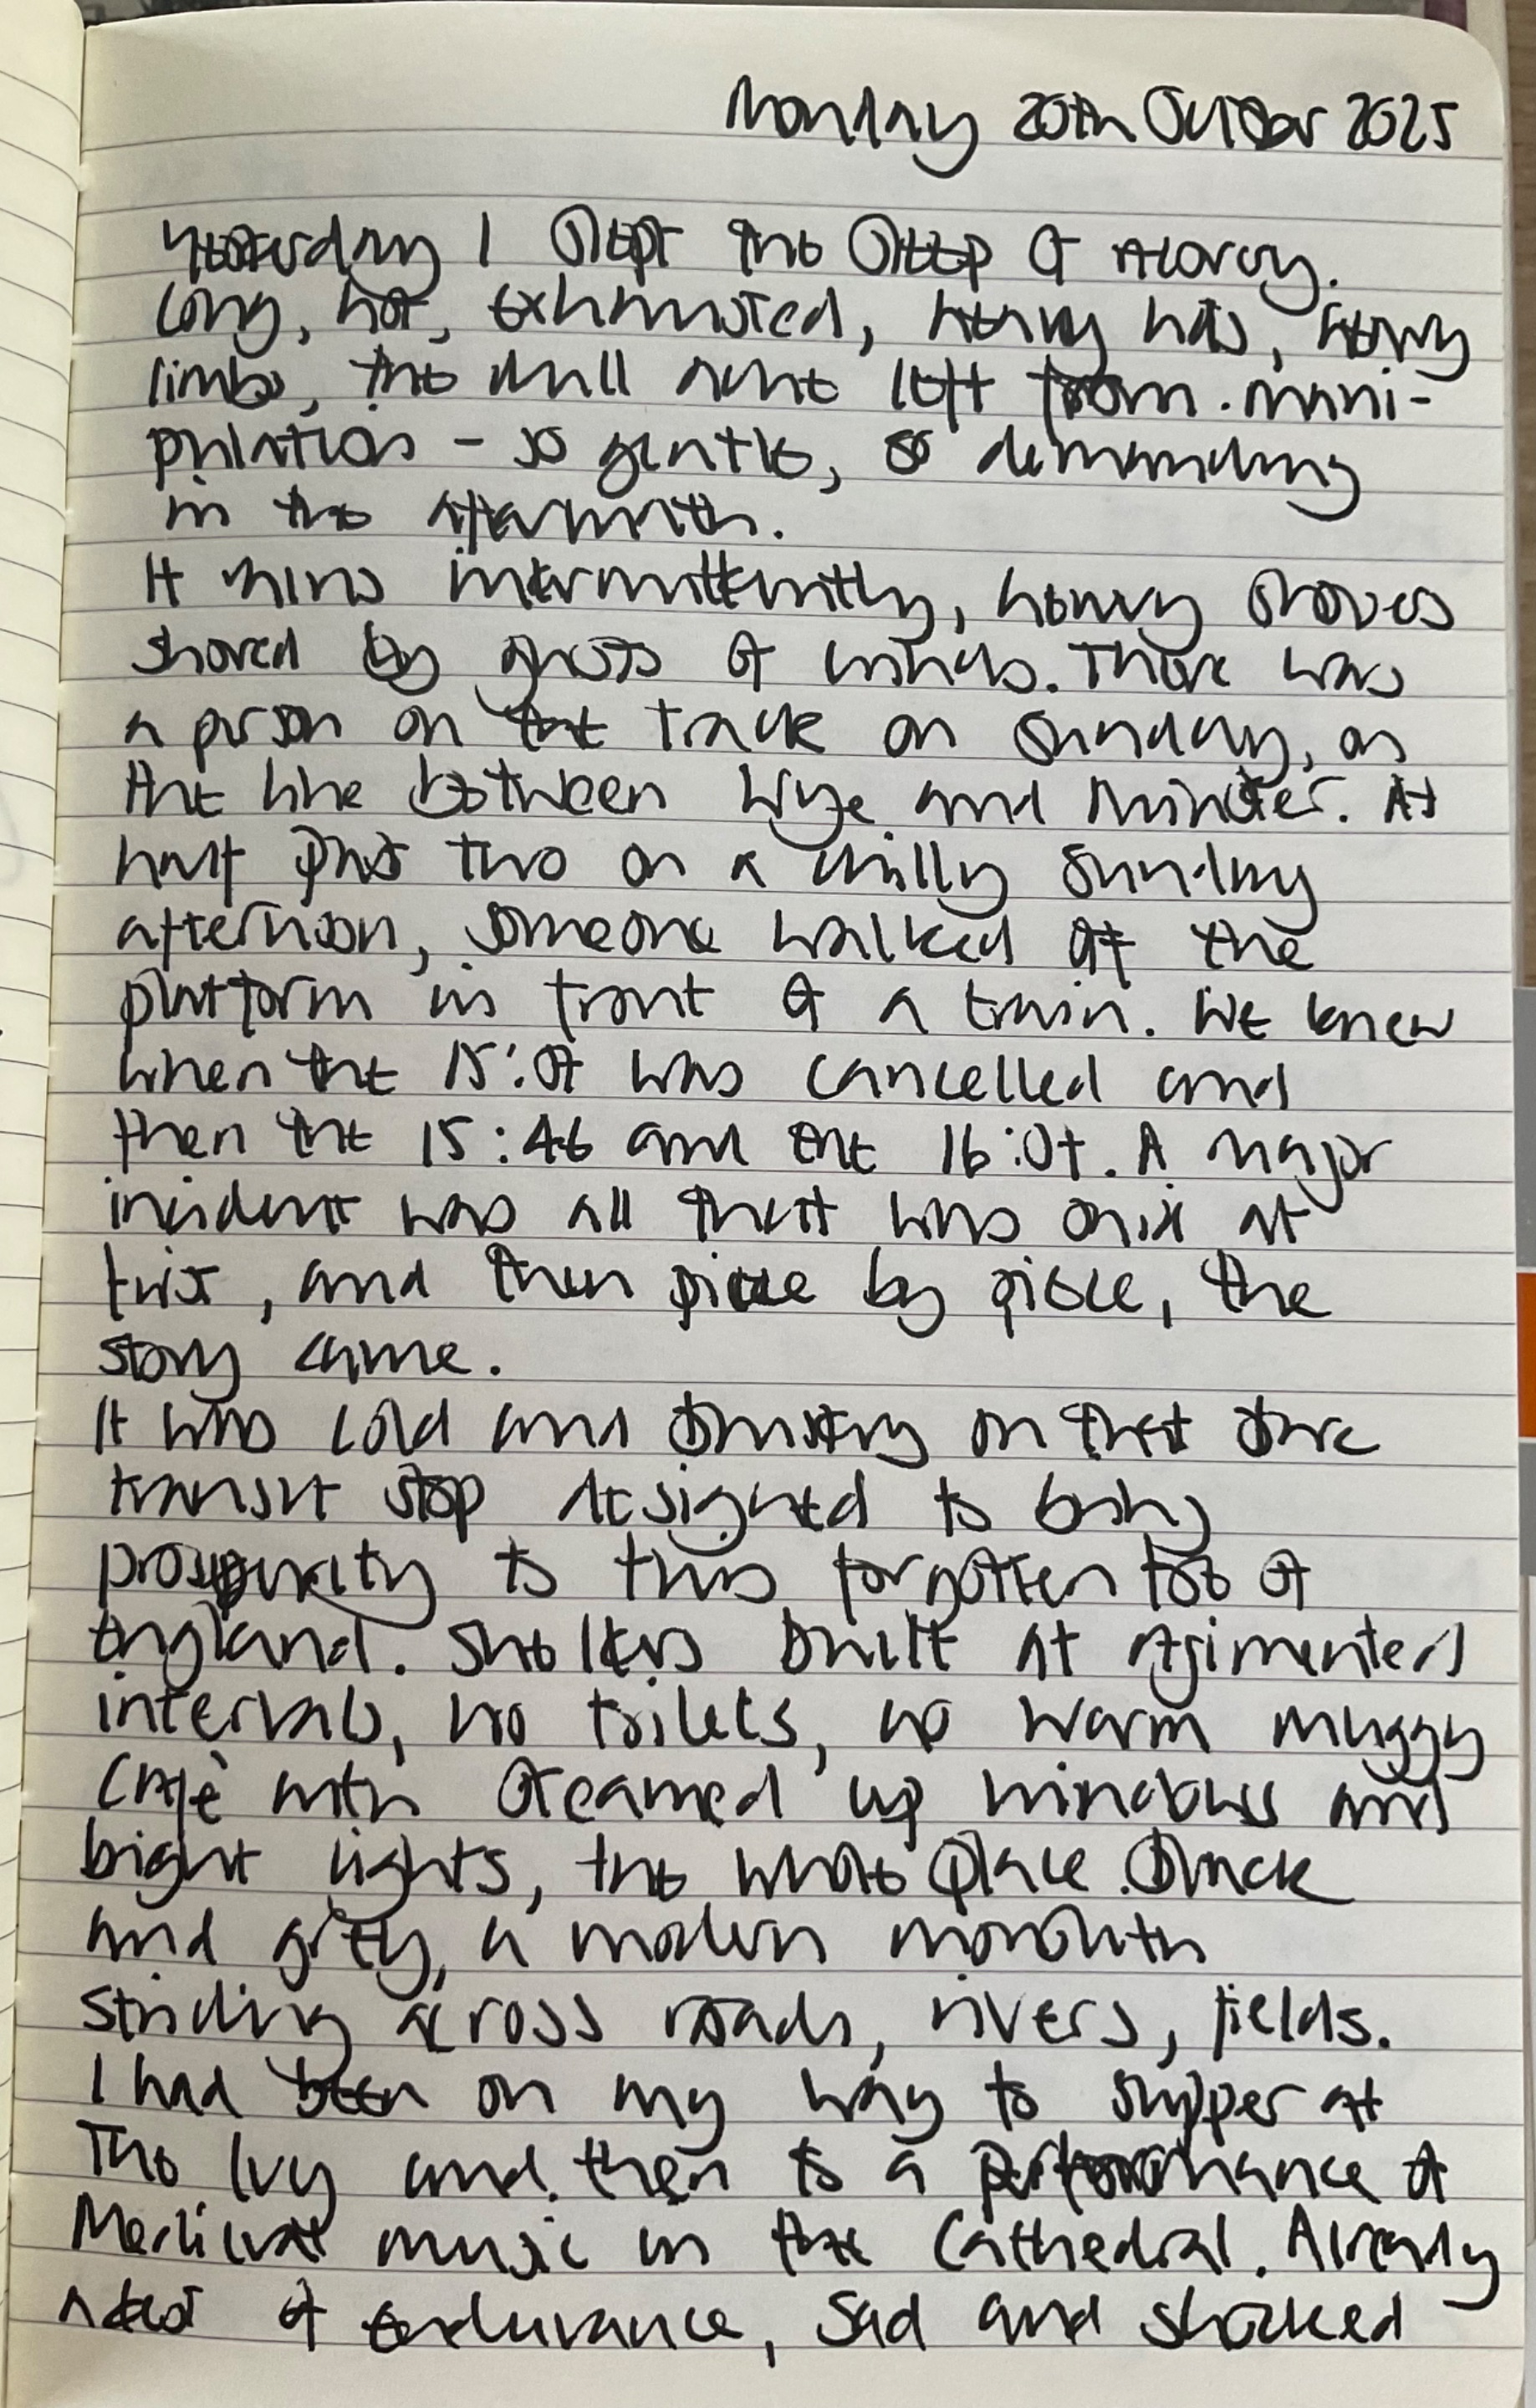 Monday 20th October 2025
Yesterday I slept the sleep of recovery.
Long, hot, exhausted, heavy lids, heavy
limbs, the dull ache left from mani-
pulations - so gentle, so demanding
in the aftermath.
It rains intermittently, heavy showers
shoved by gusts of winds. There was
a person on the track on Sunday, on
the line between Wye and Minster. At
half past two on a chilly Sunday
afternoon, someone walked off the
platform in front of a train. We knew
when the 15:07 was cancelled and
then the 15:46 and the 16:07. A major
incident was all that was said at
first, and then piece by piece, the
story came.
It was cold and blustery on that
transit stop designed to bring
prosperity to this forgotten toe of
England. Shelters built at regimented
intervals, no toilets, no warm muggy
café with steamed up windows and
bright lights, the whole place black
and grey, a modern monolith
striding across roads, rivers, fields.
I had been on my way to supper at
The Ivy and then to a performance of
Medieval music in the Cathedral. Already
a test of endurance, sad and shocked